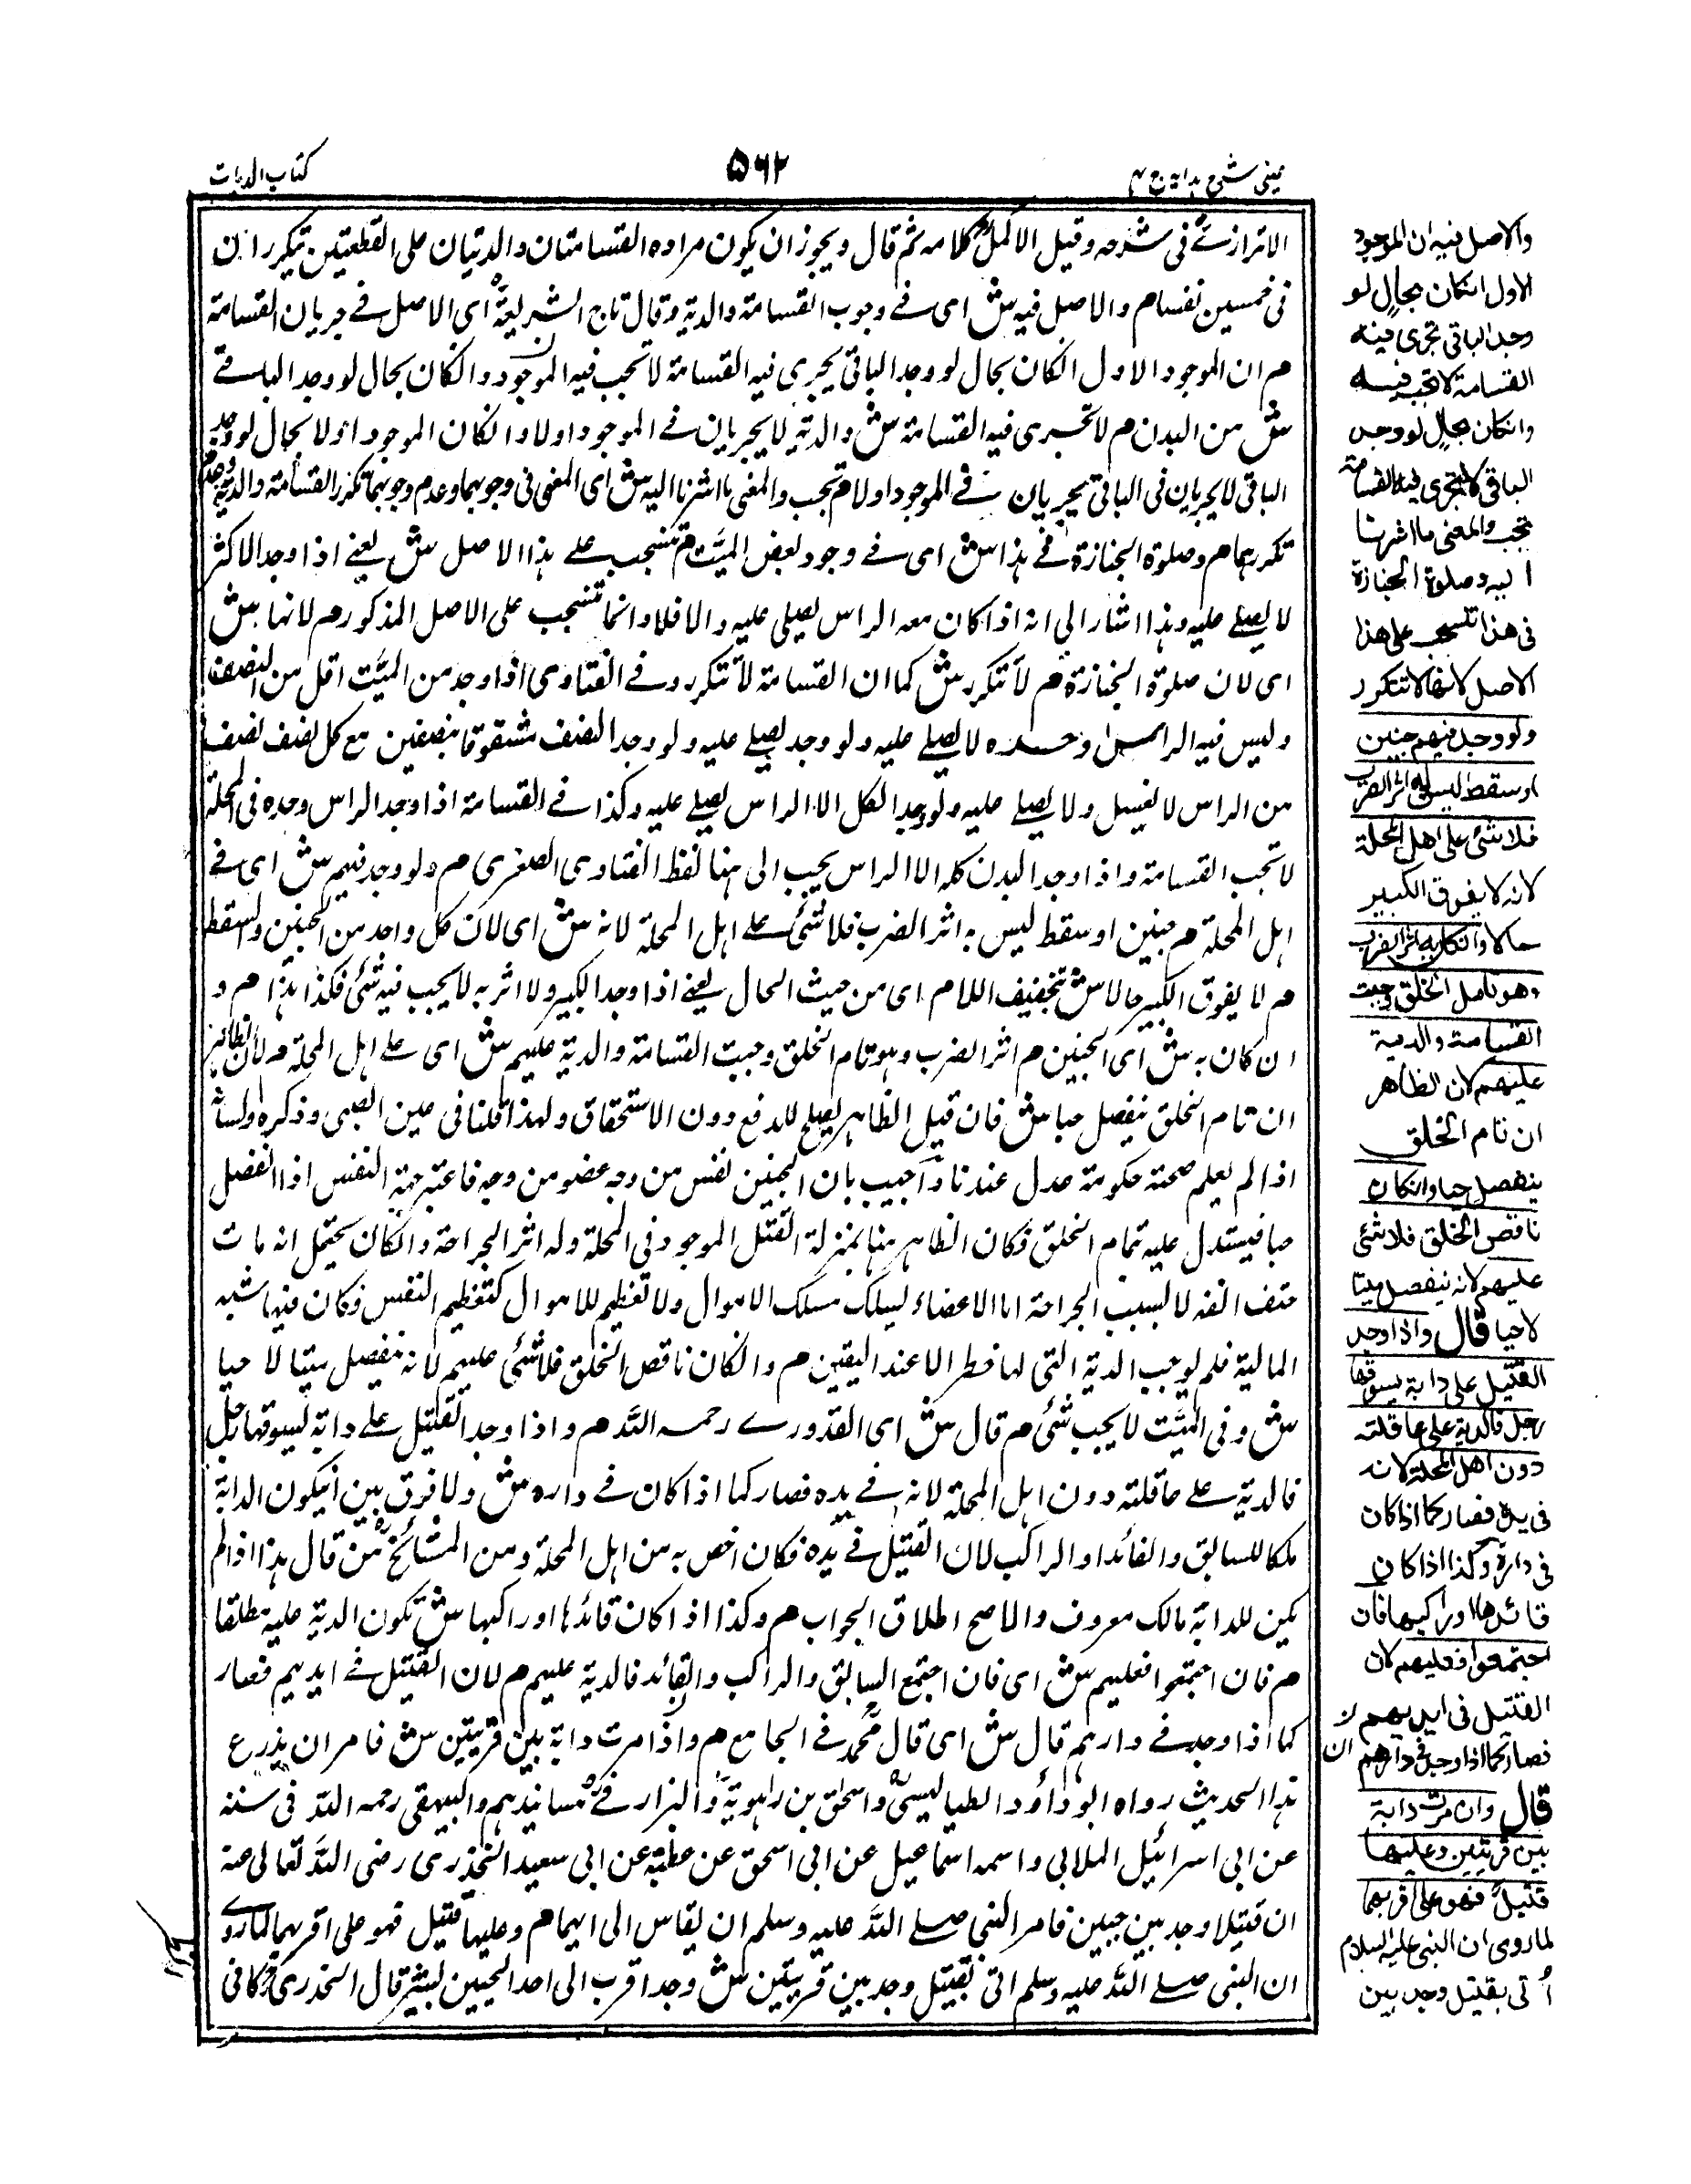 عینی شرح ہدایہ ج ۴
۵۶۲
کتاب الدیات
الاترازی فی شرحه وقیل الاکمل کلامه ثم قال ویجوز ان یکون مراده القسامتان والدیتان علی القطعتین تیکرر ان
فی خمسین نفسا م والاصل فیه ش ای فی وجوب القسامة والدیة وقال تاج الشریعة ای الاصل فی جریان القسامة
م ان الموجود الاول انکان بحال لو وجد الباقی یجری فیه القسامة لا تجب فیه الموجود وانکان بحال لو وجد الباقی
ش من البدن م لا تجری فیه القسامة ش والدیة لا یجریان فی الموجود اولا وانکان الموجود اولا بحال لو وجد
الباقی لا یجریان فی الباقی یجریان فی الموجود اولا م تجب والمعنی ما اشرنا الیه ش ای المعنی فی وجوبهما وعدم وجوبهما تکرر القسامة والدیة وعدم
تکررهما م وصلوة الجنازة فی هذا ش ای فی وجود بعض المیت م تنسحب علی هذا الاصل ش یعنی اذا وجد الاکثر
لا یصلی علیه وهذا اشار الی انه اذا کان معه الراس یصلی علیه والا فلا وانما تنسحب علی الاصل المذکور م لانها ش
ای لان صلوة الجنازة م لا تتکرر ش کما ان القسامة لا تتکرر وفی الفتاوی اذا وجد من المیت اقل من النصف
ولیس فیه الراس وحده لا یصلی علیه ولو وجد یصلی علیه ولو وجد النصف مشقوقا بنصفین مع کل نصف نصف
من الراس لا یغسل ولا یصلی علیه ولو وجد الکل الا الراس یصلی علیه وکذا فی القسامة اذا وجد الراس وحده فی المحلة
لا تجب القسامة واذا وجد البدن کله الا الراس یجب الی هنا لفظ الفتاوی الصغری م ولو وجد فیهم ش ای فی
اهل المحلة م جنین او سقط لیس به اثر الضرب فلا شئ علی اهل المحلة لانه ش ای لان کل واحد من الجنین والسقط
م لا یفوق الکبیر حالا ش بتخفیف اللام ای من حیث الحال یعنی اذا وجد الکبیر ولا اثر به لا یجب فیه شئ فکذا هذا م و
ان کان به ش ای الجنین م اثر الضرب وهو تام الخلق وجبت القسامة والدیة علیهم ش ای علی اهل المحلة م لان الظاهر
ان تام الخلق ینفصل حیا ش فان قیل الظاهر یصلح للدفع دون الاستحقاق ولهذا قلنا فی عین الصبی وذکره ولسانه
اذا لم یعلم صحته حکومة عدل عندنا واجیب بان الجنین نفس من وجه عضو من وجه فاعتبر جهة النفس اذا انفصل
حیا فیستدل علیه بتمام الخلق فکان الظاهر هنا بمنزلة القتل الموجود فی المحلة وله اثر الجراحة وانکان یحتمل انه مات
حتف انفه لا بسبب الجراحة اما الاعضاء لیسلک مسلک الاموال ولا تعظیم للاموال کتعظیم النفس فکان فیها شبه
المالیة فلم یوجب الدیة التی لها خطر الا عند الیقین م وانکان ناقص الخلق فلا شئ علیهم لانه ینفصل میتا لا حیا
ش وفی المیت لا یجب شئ م قال ش ای القدوری رحمه الله م واذا وجد القتیل علی دابة یسوقها رجل
فالدیة علی عاقلته دون اهل المحلة لانه فی یده فصار کما اذا کان فی داره ش ولا فرق بین ان یکون الدابة
ملکا للسائق والقائد او الراکب لان القتیل فی یده فکان اخص به من اهل المحلة ومن المشائخ من قال هذا اذا لم
یکن للدابة مالک معروف والاصح اطلاق الجواب م وکذا اذا کان قائدها او راکبها ش تکون الدیة علیه مطلقا
م فان اجتمعوا فعلیهم ش ای فان اجتمع السائق والراکب والقائد فالدیة علیهم م لان القتیل فی ایدیهم فصار
کما اذا وجد فی دارهم قال ش ای قال محمد فی الجامع م واذا مرت دابة بین قریتین ش فامر ان یذرع
هذا الحدیث رواه ابو داؤد الطیالیسی واسحاق بن راهویة والبزار فی مسانیدهم والبیهقی رحمه الله فی سننه
عن ابی اسرائیل الملائی واسمه اسماعیل عن ابی اسحق عن عطیة عن ابی سعید الخدری رضی الله تعالی عنه
ان قتیلا وجد بین حیین فامر النبی صلی الله علیه وسلم ان یقاس الی ایهما م وعلیها قتیل فهو علی اقربهما لما روی
ان النبی صلی الله علیه وسلم اتی بقتیل وجد بین قریتین ش وجد اقرب الی احد الحیین بشبر قال الخدری کافی
والاصل فیه ان الموجود
الاول انکان بحال لو
وجد الباقی تجری فیه
القسامة لا تجب فیه
وانکان بحال لو وجد
الباقی لا تجری فیه القسامة
تجب والمعنی ما اشرنا
الیه وصلوة الجنازة
فی هذا تنسحب علی هذا
الاصل لانها لا تتکرر
ولو وجد فیهم جنین
او سقط لیس به اثر الضرب
فلا شئ علی اهل المحلة
لانه لا یفوق الکبیر
حالا وانکان به اثر الضرب
وهو تامل الخلق وجبت
القسامة والدیة
علیهم لان الظاهر
ان تام الخلق
ینفصل حیا وانکان
ناقص الخلق فلا شئ
علیهم لانه ینفصل میتا
لا حیا قال واذا وجد
القتیل علی دابة یسوقها
رجل فالدیة علی عاقلته
دون اهل المحلة لانه
فی یده فصار کما اذا کان
فی داره وکذا اذا کان
قائدها او راکبها فان
اجتمعوا فعلیهم لان
القتیل فی ایدیهم
فصار کما اذا وجد فی دارهم
قال وان مرت دابة
بین قریتین وعلیها
قتیل فهو علی اقربهما
لما روی ان النبی علیه السلام
أتی بقتیل وجد بین